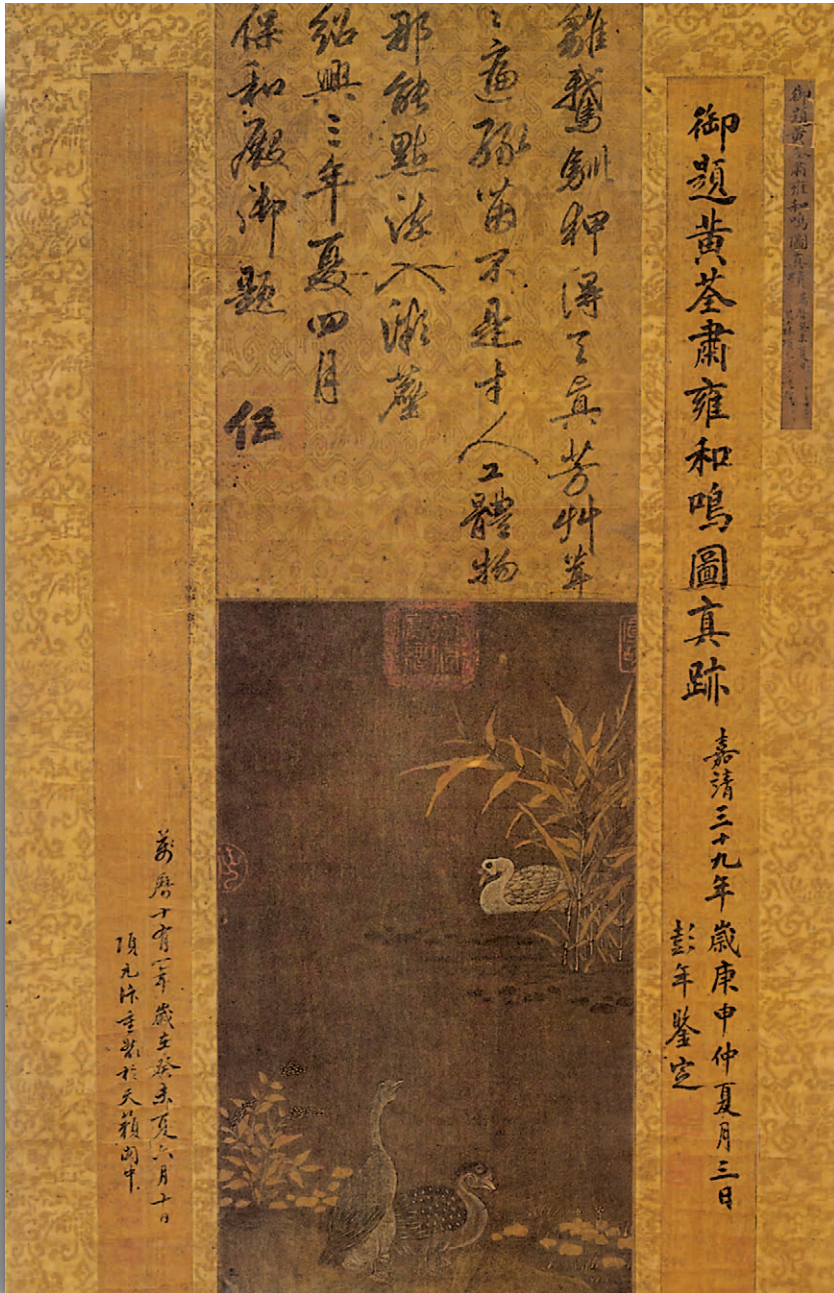 御題黃荃肅雍和鳴圖真
御題黃荃肅雍和鳴圖真跡
嘉清三十九年歲庚申仲夏月三日
彭年鑒定
雛鵞馴狎得天真芳艸茸
〻適緑茵不是才人工體物
那能點染入微塵
紹興三年夏四月
保和殿御題
萬曆十有一年歲在癸未夏六月十日
項元汴重裝於天籟閣中